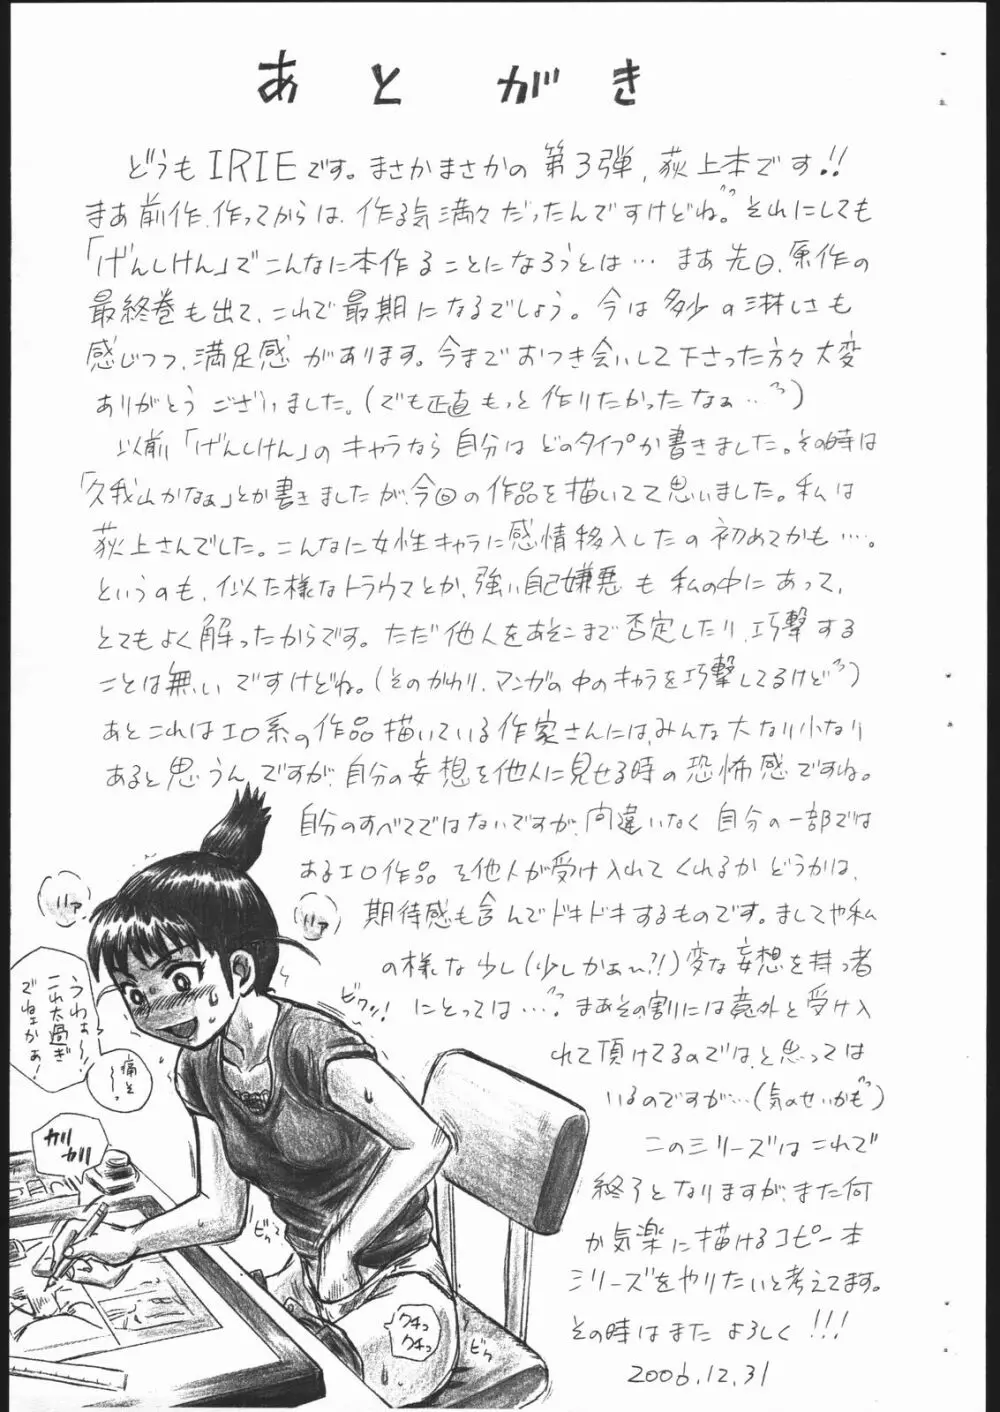 あとがき
どうもIRIEです。まさかまさかの第3弾、荻上本です!!
まあ前作、作ってからは、作る気満々だったんですけどね。それにしても
「げんしけん」でこんなに本作ることになろうとは… まあ先日、原作の
最終巻も出て、これで最期になるでしょう。今は多少の淋しさも
感じつつ、満足感があります。今までおつき会いして下さった方々大変
ありがとうございました。(でも正直もっと作りたかったなぁ…)
以前「げんしけん」のキャラなら自分はどのタイプか書きました。その時は
「久我山かなぁ」とか書きましたが、今回の作品を描いてて思いました。私は
荻上さんでした。こんなに女性キャラに感情移入したの初めてかも…。
というのも、似た様なトラウマとか、強い自己嫌悪も私の中にあって、
とてもよく解ったからです。ただ他人をあそこまで否定したり、巧撃する
ことは無いですけどね。(そのかわり、マンガの中のキャラを巧撃してるけど)
あとこれはエロ系の作品描いている作家さんには、みんな大なり小なり
あると思うんですが、自分の妄想を他人に見せる時の恐怖感ですね。
自分のすべてではないですが、間違いなく自分の一部では
あるエロ作品を他人が受け入れてくれるかどうかは、
期待感も含んでドキドキするものです。ましてや私
の様な少し(少しかぁ〜?!)変な妄想を持つ者
にとっては…。まあその割には意外と受け入
れて頂けてるのでは、と思っては
いるのですが…(気のせいかも)
このシリーズはこれで
終了となりますが、また何
か気楽に描けるコピー本
シリーズをやりたいと考えてます。
その時はまたよろしく!!!
2006.12.31
ハァ
ハァ
うわぁ〜!
これ太過ぎ
でねェかぁ!
痛そ〜っ
カリカリ
ビクッ!
ビクッ
クチュ
クチュ
ビクッ